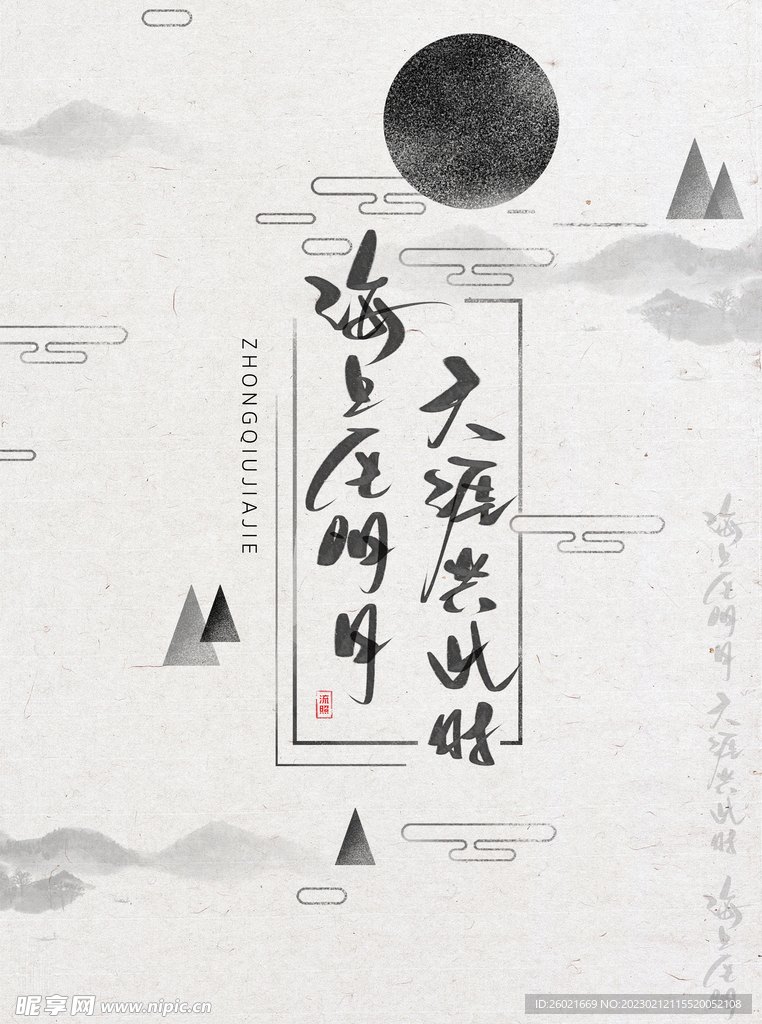 海上生明月
天涯共此时
ZHONGQIUJIAJIE
流照
海上生明月 天涯共此时 海上生明
昵享网 www.nipic.cn
ID:26021669 NO:20230212115520052108